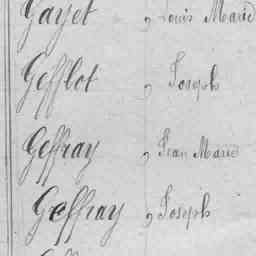 Gayet, Louis Marie
Gefflot, Joseph
Geffray, Jean Marie
Geffray, Joseph